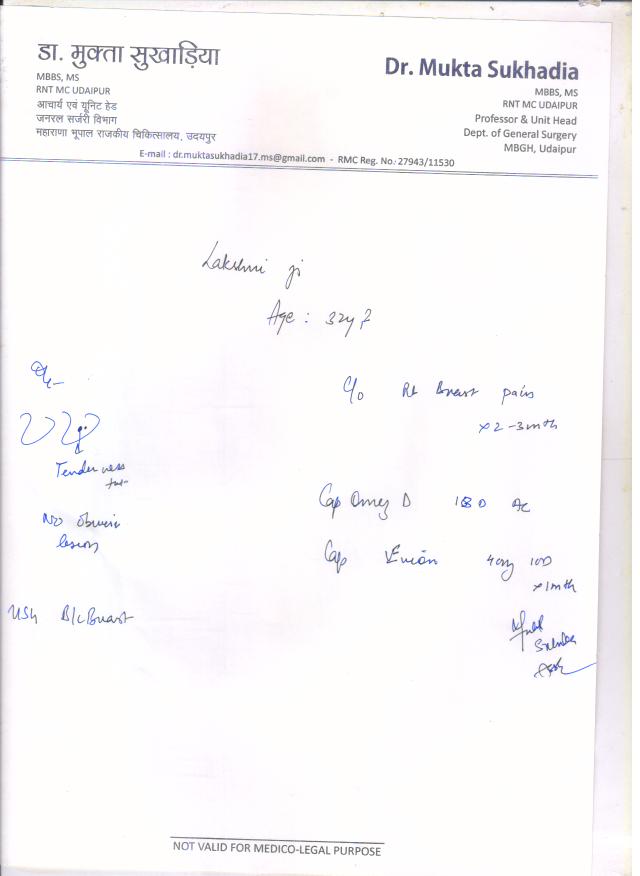 डा. मुक्ता सुखाड़िया
MBBS, MS
RNT MC UDAIPUR
आचार्य एवं यूनिट हेड
जनरल सर्जरी विभाग
महाराणा भूपाल राजकीय चिकित्सालय, उदयपुर
Dr. Mukta Sukhadia
MBBS, MS
RNT MC UDAIPUR
Professor & Unit Head
Dept. of General Surgery
MBGH, Udaipur
E-mail : dr.muktasukhadia17.ms@gmail.com - RMC Reg. No.: 27943/11530
Lakshmi ji
Age : 32y F
C/o Rt Breast pain
x 2-3 mth
O/E-
Tenderness
No obvious
lesion
Cap Omez D AC
Cap Evion
x 1mth
USG B/L Breast
NOT VALID FOR MEDICO-LEGAL PURPOSE